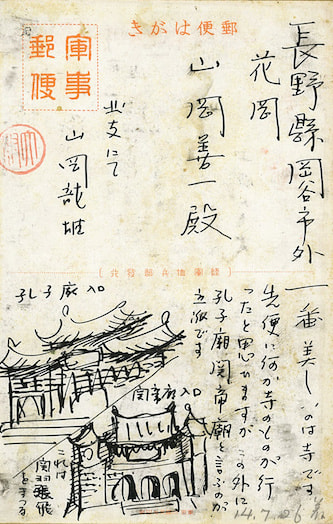 郵便はがき
軍事
郵便
長野縣岡谷市外
花岡
山岡善一殿
北支にて
山岡龍
一番美しいのは寺です。
先便に何か寺のものが行
つたと思ひますが この外に
孔子廟関帝廟と言ふのが
立派です
孔子廟入口
関帝廟入口
これは
関羽張飛
をまつる
14.7.26